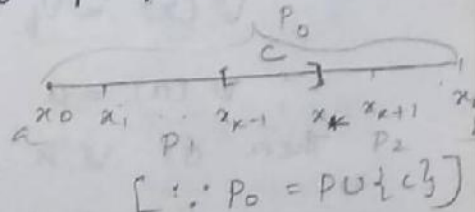 P₀
C
x₀ x₁ xₖ₋₁ xₖ xₖ₊₁
a
P₁ P₂
[∵ P₀ = P∪{c}]